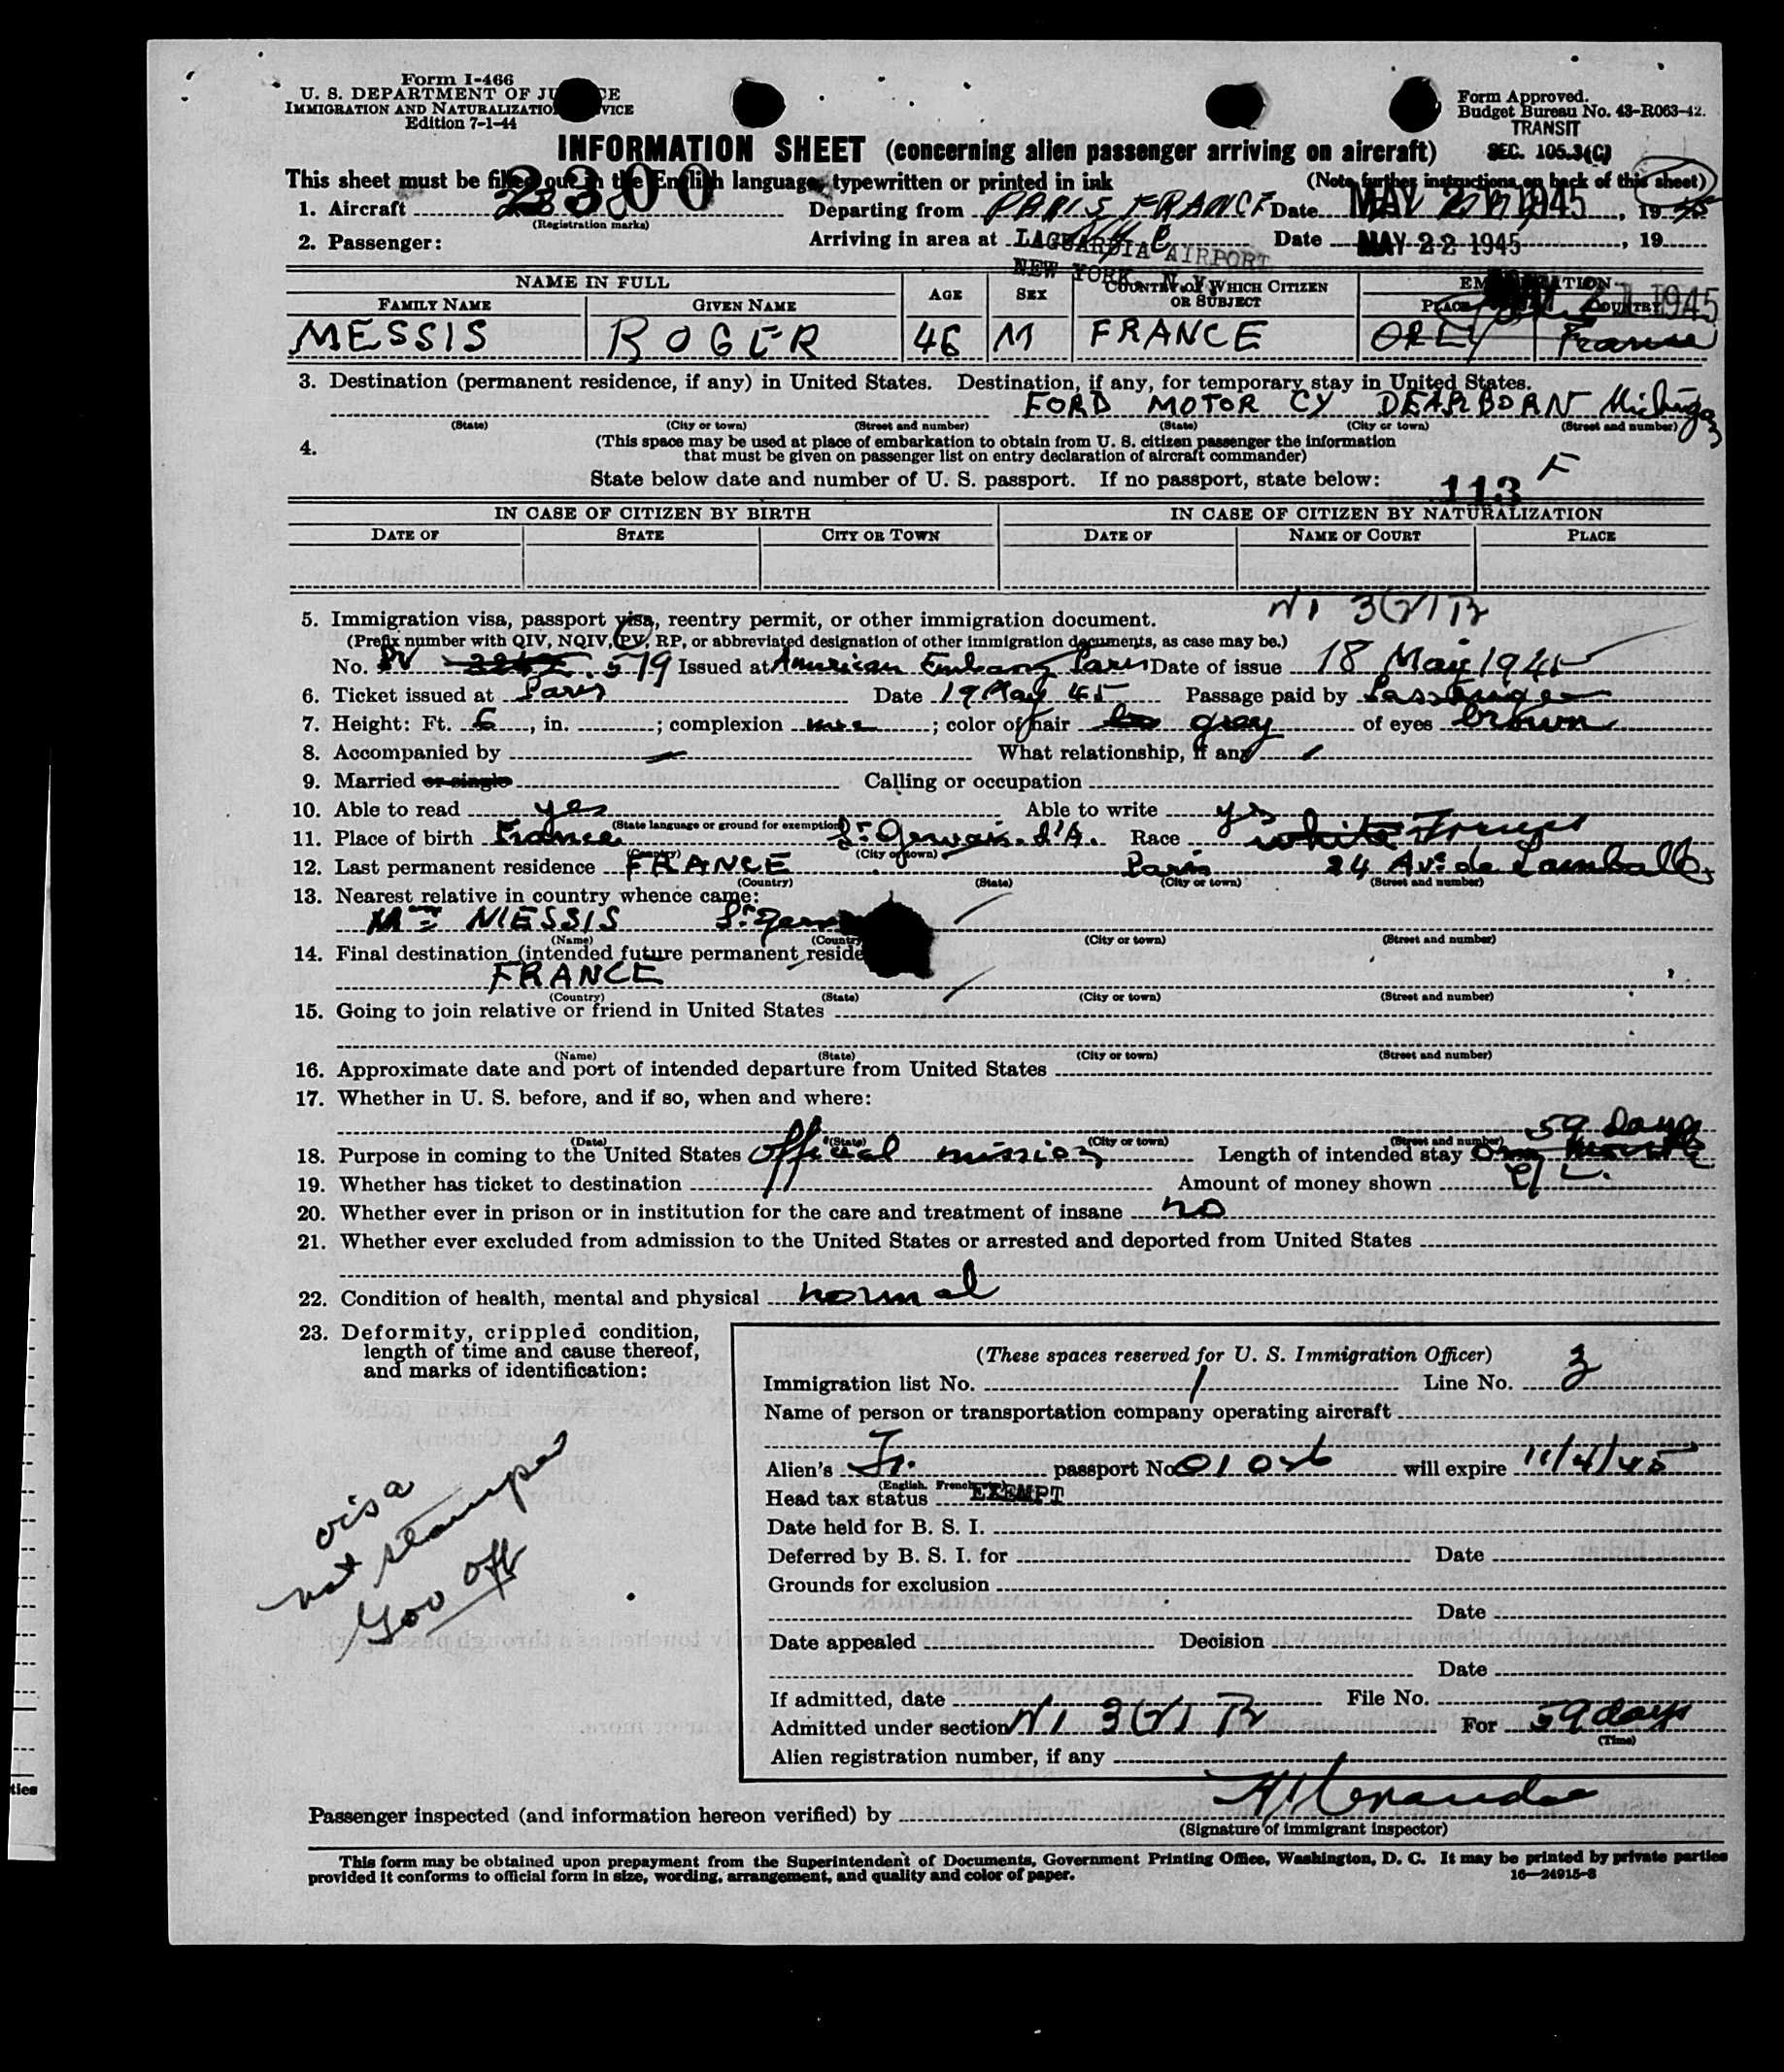 Form I-466
U. S. DEPARTMENT OF JU CE
IMMIGRATION AND NATURALIZATIO VICE
Edition 7-1-44
Form Approved.
Budget Bureau No. 43-R063-42.
TRANSIT
SEC. 105.3(C)
INFORMATION SHEET (concerning alien passenger arriving on aircraft)
This sheet must be filled out in the English language, typewritten or printed in ink
(Note further instructions on back of this sheet)
2300
1. Aircraft
(Registration marks)
Departing from PARIS FRANCE Date MAY 1945, 1945
2. Passenger:
Arriving in area at LAGUARDIA AIRPORT Date MAY 22 1945, 19
NEW YORK, N. Y.
NAME IN FULL
FAMILY NAME GIVEN NAME AGE SEX COUNTRY OF WHICH CITIZEN OR SUBJECT PLACE COUNTRY
1945
MESSIS ROGER 46 M FRANCE ORLY France
3. Destination (permanent residence, if any) in United States. Destination, if any, for temporary stay in United States.
FORD MOTOR CY DEARBORN Michigan
(State) (City or town) (Street and number) (State) (City or town) (Street and number)
4. (This space may be used at place of embarkation to obtain from U. S. citizen passenger the information
that must be given on passenger list on entry declaration of aircraft commander)
State below date and number of U. S. passport. If no passport, state below:
113 F
IN CASE OF CITIZEN BY BIRTH IN CASE OF CITIZEN BY NATURALIZATION
DATE OF STATE CITY OR TOWN DATE OF NAME OF COURT PLACE
5. Immigration visa, passport visa, reentry permit, or other immigration document.
(Prefix number with QIV, NQIV, PV, RP, or abbreviated designation of other immigration documents, as case may be.)
No. PV 579 Issued at American Embassy Paris Date of issue 18 May 1945
6. Ticket issued at Paris Date 19 May 45 Passage paid by Passenger
7. Height: Ft. 6, in. ; complexion ; color of hair grey of eyes brown
8. Accompanied by What relationship, if any
9. Married or single Calling or occupation
10. Able to read yes Able to write yes
(State language or ground for exemption)
11. Place of birth France St Gervais d'A. Race white French
(Country) (City or town)
12. Last permanent residence FRANCE Paris 24 Av. de Lamballe
(Country) (State) (City or town) (Street and number)
13. Nearest relative in country whence came:
Mme MESSIS
(Name) (Country (City or town) (Street and number)
14. Final destination (intended future permanent reside
FRANCE
(Country) (State) (City or town) (Street and number)
15. Going to join relative or friend in United States
(Name) (State) (City or town) (Street and number)
16. Approximate date and port of intended departure from United States
17. Whether in U. S. before, and if so, when and where:
(Date) (State) (City or town) (Street and number)
59 days
18. Purpose in coming to the United States Official mission Length of intended stay One month
19. Whether has ticket to destination Amount of money shown
20. Whether ever in prison or in institution for the care and treatment of insane no
21. Whether ever excluded from admission to the United States or arrested and deported from United States
22. Condition of health, mental and physical normal
23. Deformity, crippled condition,
length of time and cause thereof,
and marks of identification:
visa
not stamped
(These spaces reserved for U. S. Immigration Officer)
Immigration list No. 1 Line No. 3
Name of person or transportation company operating aircraft
Alien's Fr. passport No. 01026 will expire 11/4/45
Head tax status EXEMPT
Date held for B. S. I.
Deferred by B. S. I. for Date
Grounds for exclusion
Date
Date appealed Decision
Date
If admitted, date File No.
Admitted under section For 59 days
(Time)
Alien registration number, if any
Passenger inspected (and information hereon verified) by
(Signature of immigrant inspector)
This form may be obtained upon prepayment from the Superintendent of Documents, Government Printing Office, Washington, D. C. It may be printed by private parties
provided it conforms to official form in size, wording, arrangement, and quality and color of paper.
16—24915-3
ties